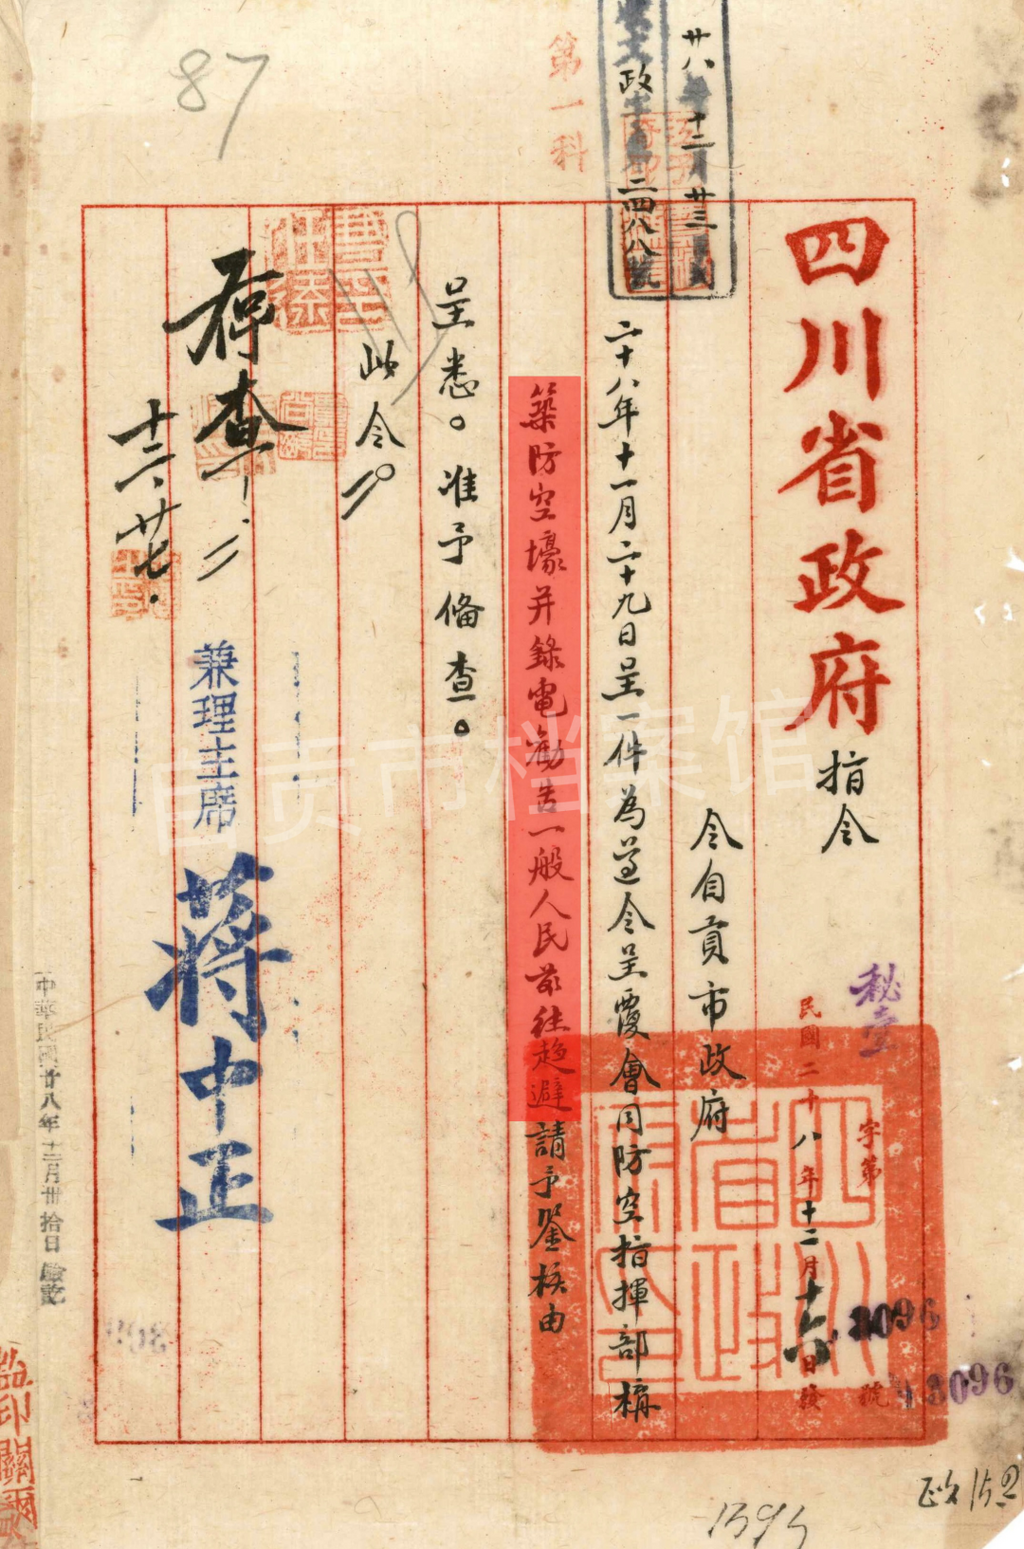 87
第一科
廿八年十二月廿三日
政字第二四八八號
四川省政府
指令
秘壹
字第
號
民國二十八年十二月十
日發
3096
13096
令自貢市政府
二十八年十一月二十九日呈一件為遵令呈覆會同防空指揮部構
築防空壕并錄電勸告一般人民前往趨避請予鑒核由
呈悉。准予備查。
此令。
兼理主席
蔣中正
存查
十二、廿七.
中華民國廿八年十二月卅拾日
監印
自贡市档案馆
政152